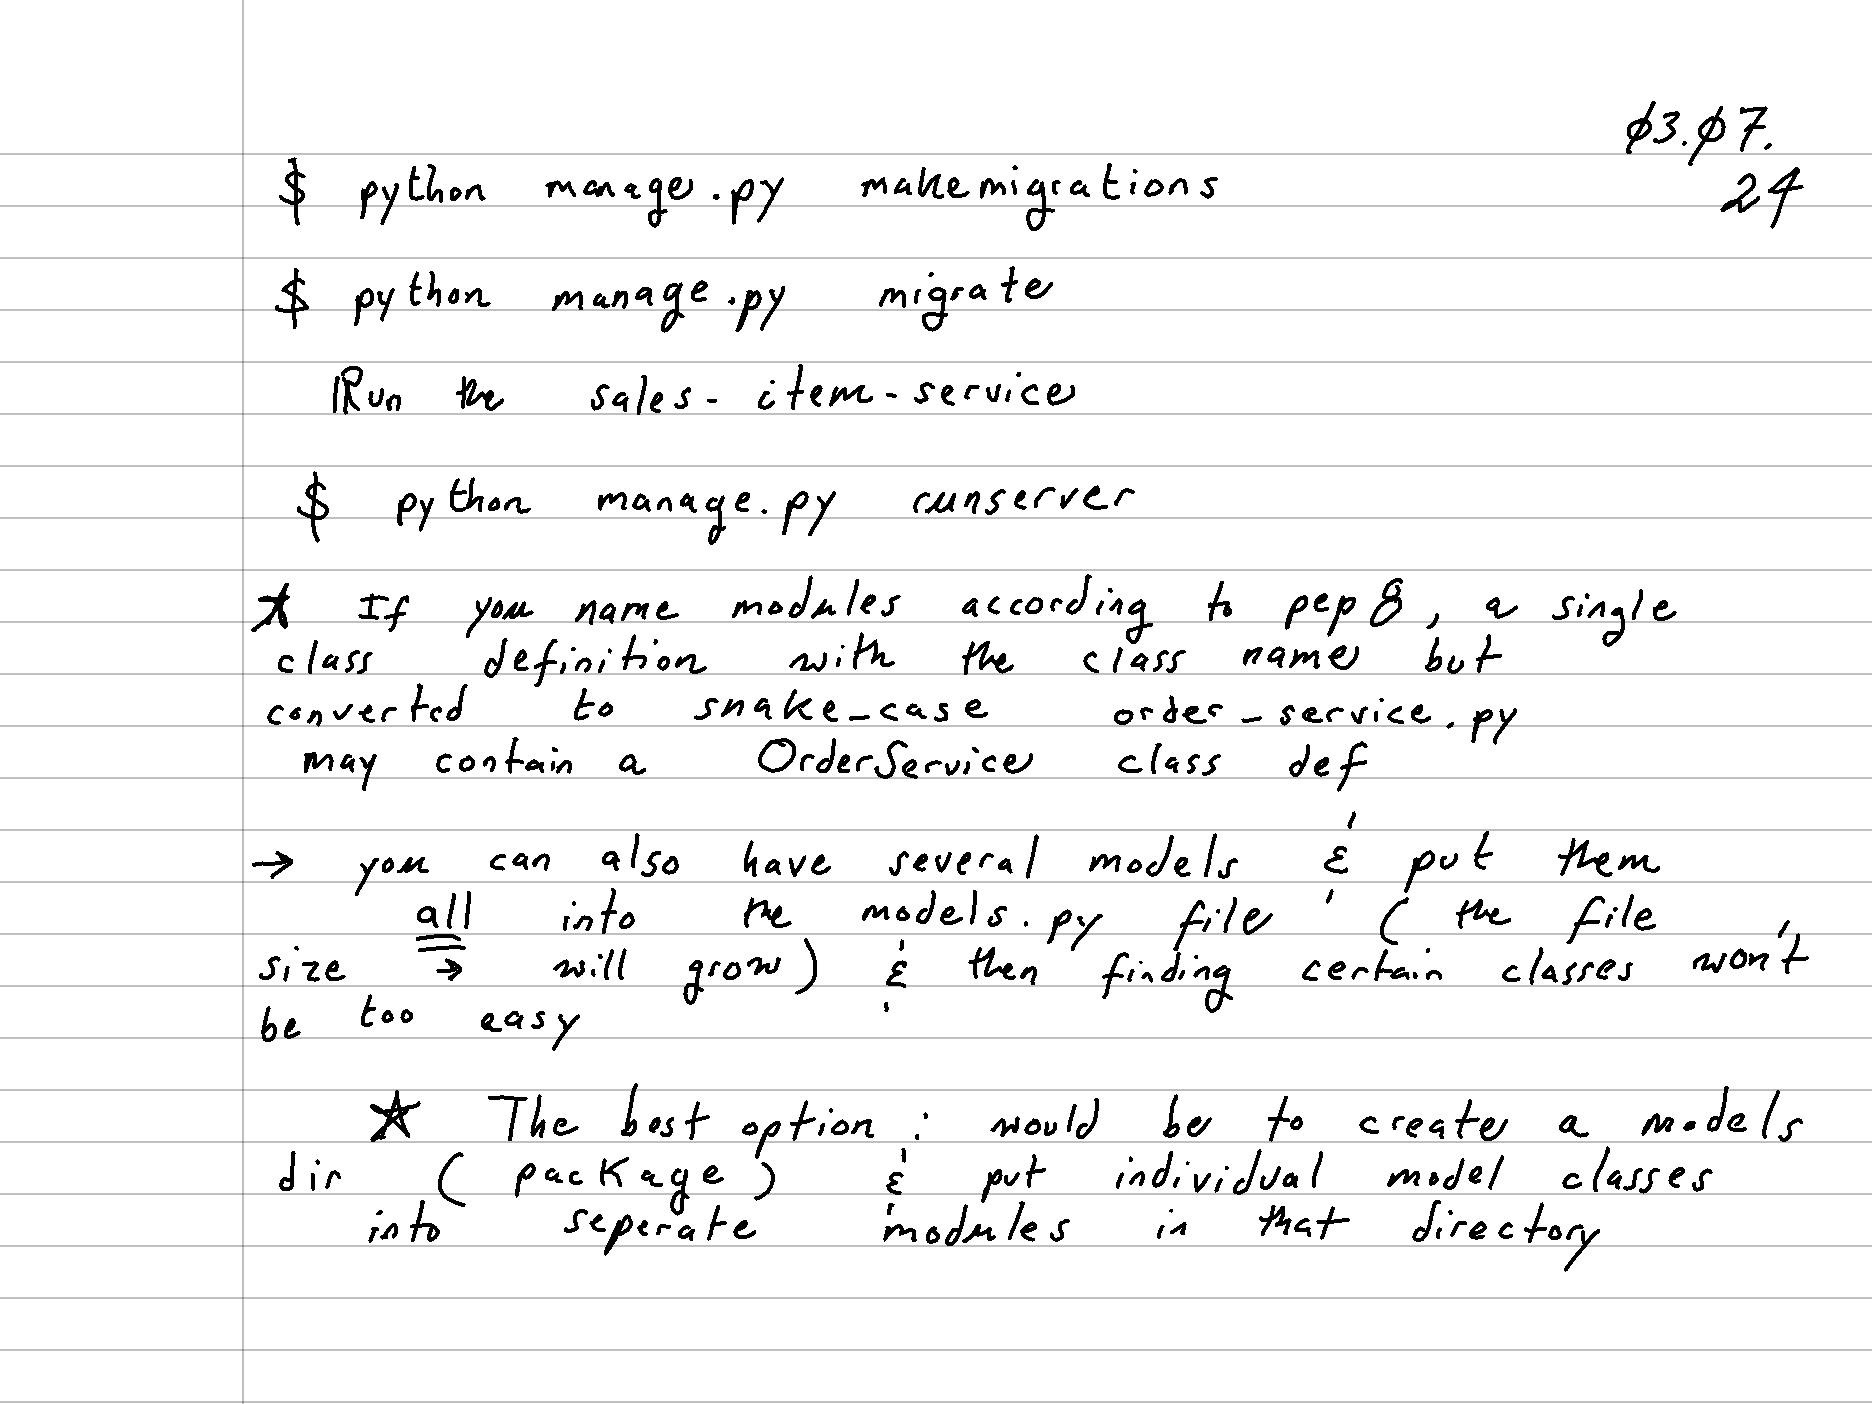 ø3.ø7.
24
$ python manage.py makemigrations
$ python manage.py migrate
Run the sales-item-service
$ python manage.py runserver
★ If you name modules according to pep 8, a single
class definition with the class name but
converted to snake_case order_service.py
may contain a OrderService class def
→ you can also have several models & put them
all into the models.py file (the file
size → will grow) & then finding certain classes won't
be too easy
★ The best option: would be to create a models
dir (package) & put individual model classes
into seperate modules in that directory